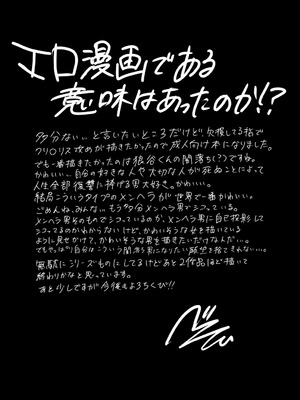 エロ漫画である
意味はあったのか!?
多分ない…と言いたいところだけど、欠損してる指で
クリ○リス攻めが描きたかったので成人向け本になりました。
でも一番描きたかったのは狼谷くんの闇落ち(?)ですね。
かわいい…自分の好きな人や大切な人が死ぬことによって
人生全部復讐に捧げる男大好き。かわいい。
結局こういうタイプのメンヘラが世界で一番かわいい。
ごめんね、みんな…もう多分メンヘラ男でシコっている。
メンヘラ男そのものでシコっているのか、メンヘラ男に自己投影して
シコってるのかわからないけど、かわいそうな女を描いている
ように見せかけて、かわいそうな男を描きたいだけなんだ…。
でもやっぱり自分はこういう闇落ち男になりたい願望を捨てきれない…。
無駄にシリーズものにしてるけどあと2作品ほど描いて
終わりかなと思っています。
あと少しですが今後もよろしくび!!